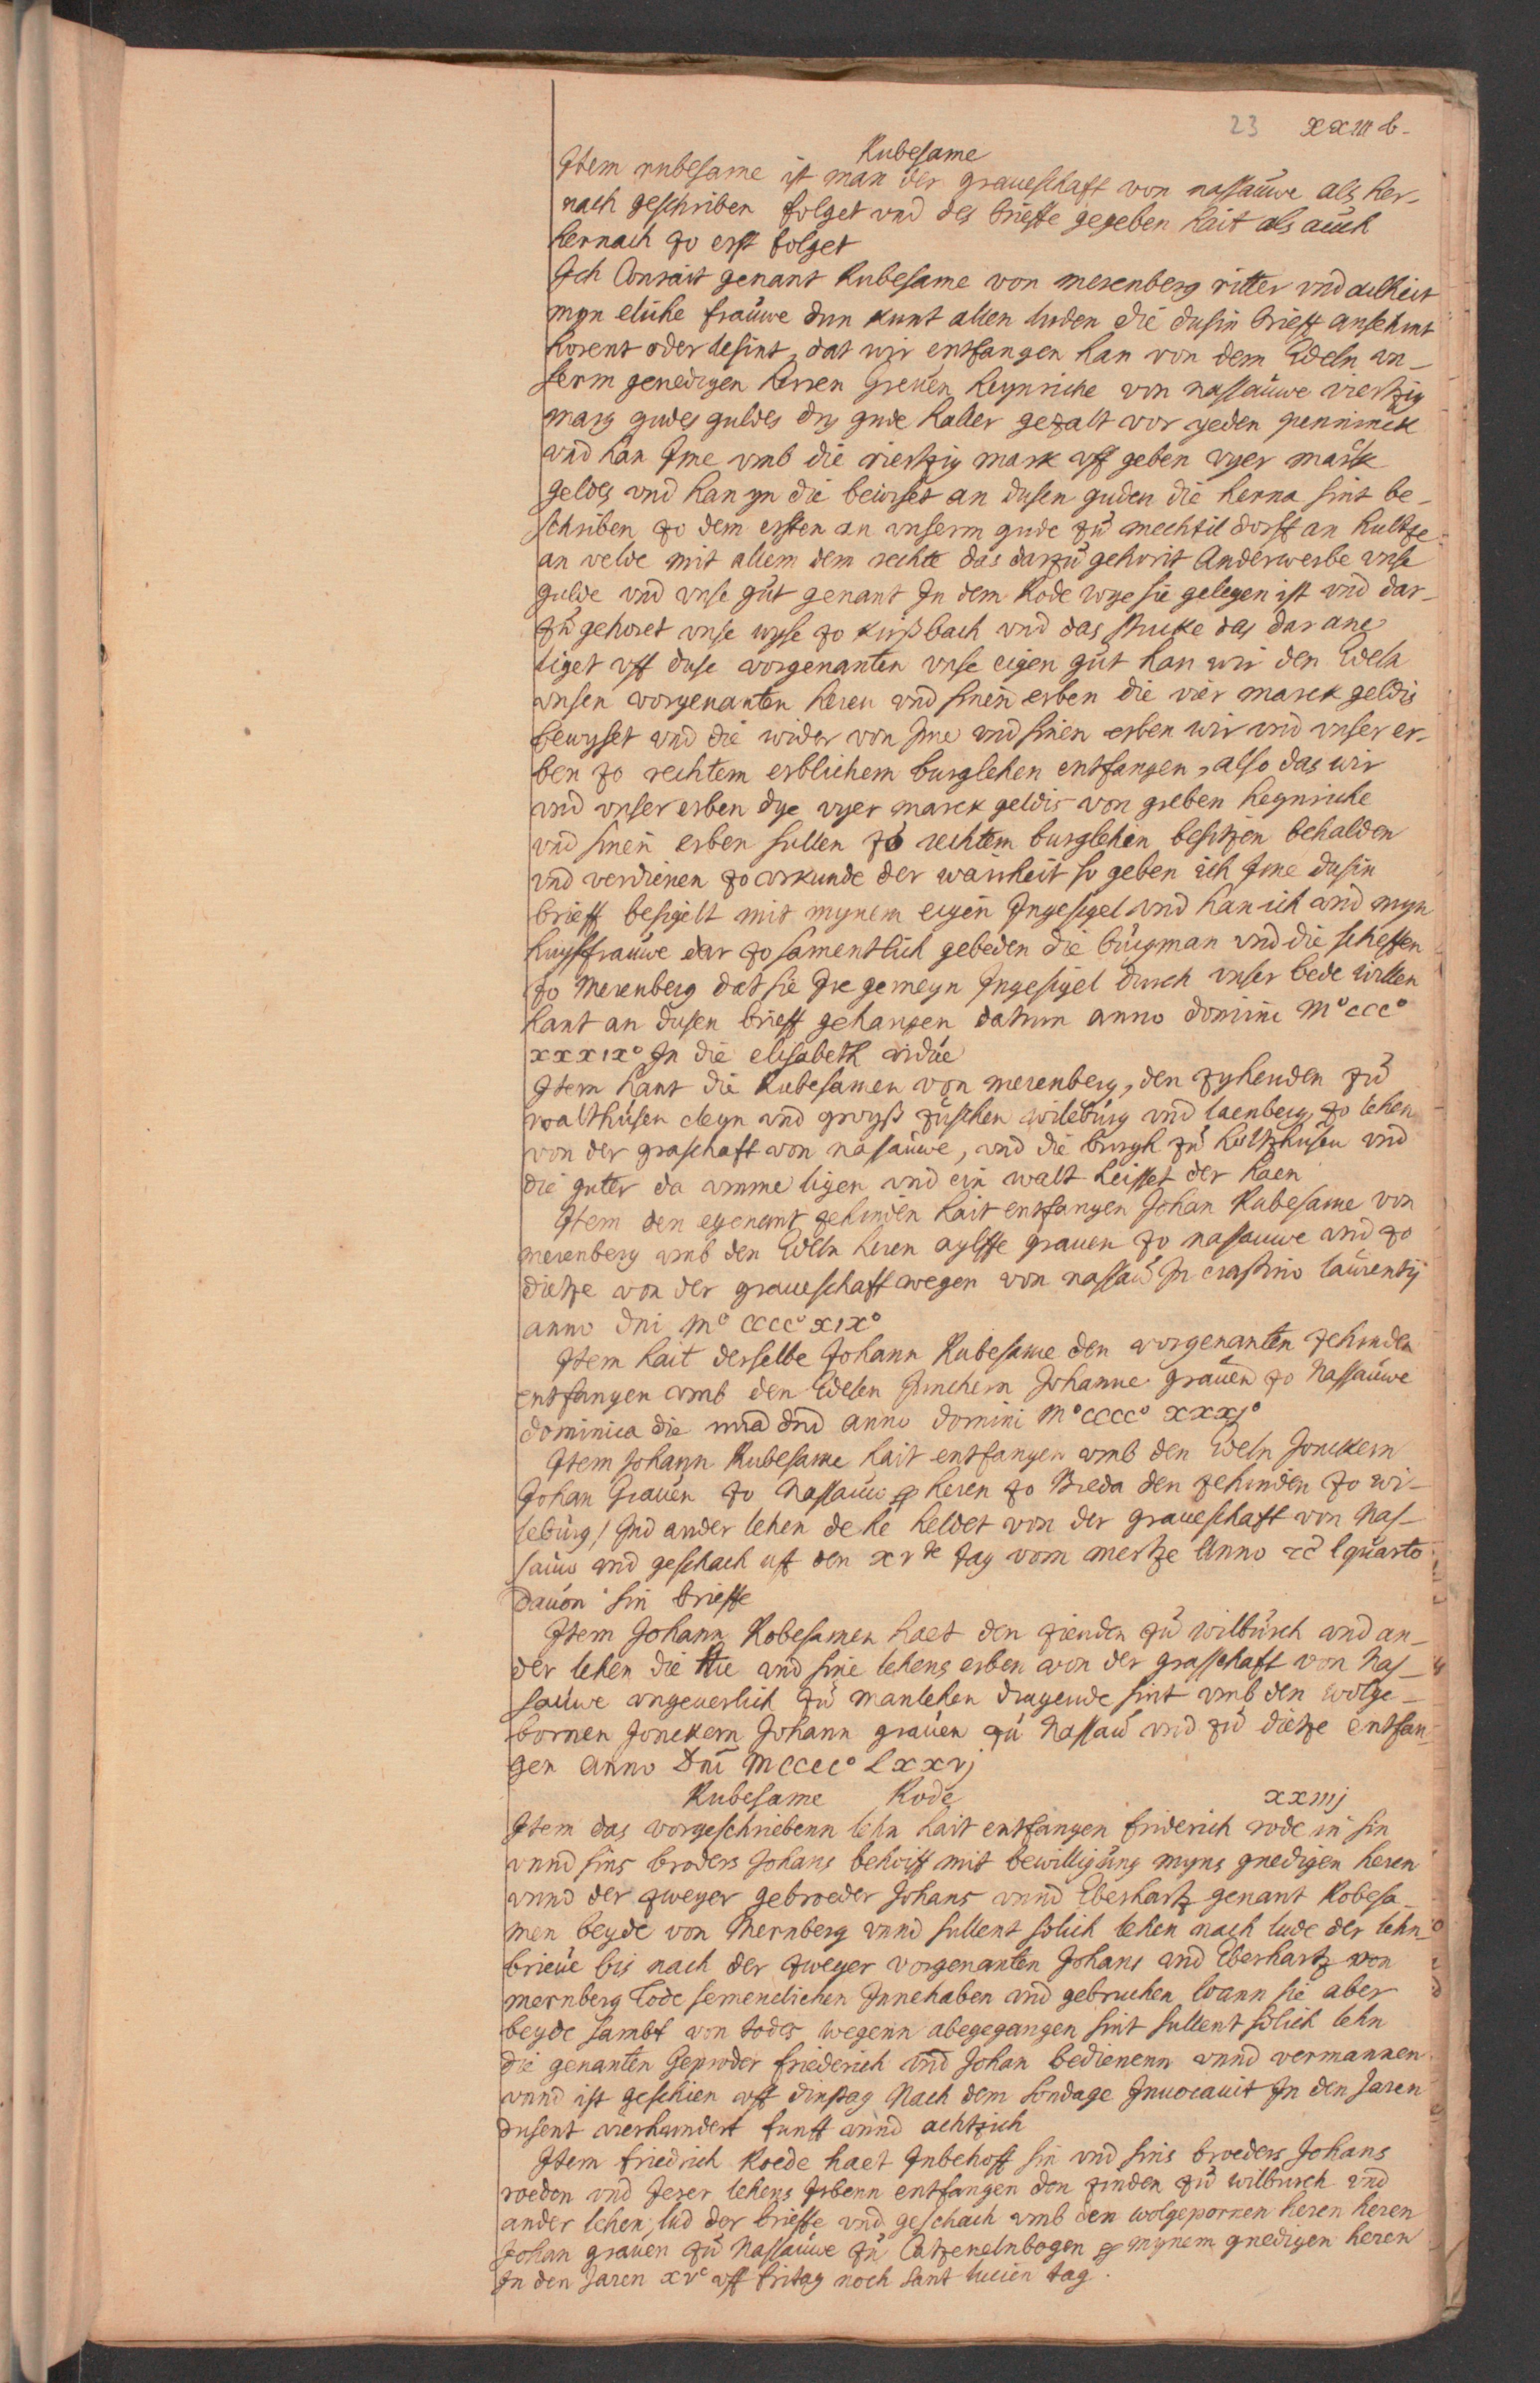 23 xxiii b-
Rubesame
Item rubesame ist man der graueschaft von nassauwe als her-
nach geschriben folget vnd des brieffe gegeben hait als auch
hernach zo erst folget
Ich Conrait genant Rubesame von merenberg ritter vnd aelheit
myn eliche frauwe dun kunt allen luden die dusin brieff ansehint
horent oder lesint, dat wir entfangen han von dem Edeln vn-
serm genedigen herren Greuen heynriche von nassauwe viertzig
marg gudes guldes dry gude haller gezalt vor yeden pennineck
vnd han Ime vmb die viertzig mark vff geben vyer mark
geldes vnd han yn die bewiset an dusen guden die herna sint be-
schriben zo dem ersten an vnserm gude zu mechtildorff an hultze
an velde mit allem dem rechte das darzu gehorit Anderwerbe vnse
gulde vnd vnse gut genant In dem Rode wye sie gelegen ist vnd dar-
zu gehoret vnse wyse zo kirßbach vnd das stucke das dar ane
liget vff duse vorgenanten vnse eigen gut han wir den Edeln
vnsen vorgenanten heren vnd sinen erben die vier marck geldis
bewyset vnd die wider von Ime vnd sinen erben wir vnd vnser er-
ben zo rechtem erblichem burglehen entfangen, also das wir
vnd vnser erben dye vyer marck geldis von greben heynriche
vnd sinen erben sullen zo rechtem burglehin besitzen behalden
vnd verdienen zo vrkunde der wairheit so geben ich Ime dusin
brieff besigelt mit mynem eigen Ingesigel vnd han ich vnd myn
huysfrauwe dar zo samentlich gebeden die burgman vnd die scheffen
zo Merenberg dat sie Ire gemeyn Ingesigel durch vnser bede willen
hant an dusen brieff gehangen datum anno domini M° ccc°
xxxix° In die elisabeth vidue
Item hant die Rubesamen von merenberg, den zyhenden zu
walthusen cleyn vnd groyß zuschen wileburg vnd laenberg, zo lehen
von der graschaft von nasauwe, vnd die burgh zu holtzhusen vnd
die guter da vmme ligen vnd ein walt heisset der haen
Item den egenant zehinden hait entfangen Johan Rubesame von
merenberg vmb den Edeln heren aylffe grauen zo nassauwe vnd zo
dietze von der graueschaft wegen von nassau In crastino laurentij
anno dni M° cccc° xix°
Item hait derselbe Johann Rubesame den vorgenanten zehinden
entfangen vmb den Edelen Junchern Johanne grauen zo Nassauwe
dominica die anno domini M° cccc° xxxj°
Item Johann Rubesame hait entfangen vmb den Edeln Jonckern
Johan Grauen zo Nassauw heren zo Breda den zehinden zo wi-
leburg / Ind ander lehen de he heldet von der graueschaft von Nas-
sauw vnd geschach vff den xv te tag vom mertze Anno lquarto
dauon sin brieffe
Item Johann Robesamen haet den zienden zu wilburch vnd an-
der lehen die Hie vnd sine lehens erben von der grasschaft von Nas-
sauwe vngeuerlich zu manlehen dragende sint vmb den wolge-
bornen Jonckern Johann grauen zu Nassau vnd zu dietze entfan-
gen anno Dni Mcccc° Lxxvj
Rubesame Rode xxiiij
Item das vorgeschriebenn lehn hait entfangen friderich rode in sin
vnnd sins broders Johans behoiff mit bewilligung myns gnedigen heren
vnnd der zweyer gebroeder Johans vnnd Eberhartz genant Robesa-
men beyde von Mernberg vnnd sullent solich lehen nach lude der lehn-
brieue bis nach der zweyer vorgenanten Johans vnd Eberhartz von
mernberg Tode semenclichen Innehaben vnd gebruchen Wann sie aber
beyde sambt von todes wegenn abegegangen sint sullent solich lehn
die genanten Geproder friederich vnd Johan bedienenn vnnd vermannen
vnnd ist geschien vff dinstag Nach dem sondage Inuocauit In den Jaren
dusent vierhundert funff vnnd achtzich
Item friedrich Roede haet Inbehoff sin vnd sins broeders Johans
roeden vnd Jerer lehens Erbenn entfangen den zinden zu wilburch vnd
ander lehen, lud der brieffe vnd geschach vmb den wolgepornen heren heren
Johan grauen zu Nassauwe zu Catzenelnbogen mynem gnedigen heren
In den Jaren xv c vff fritag noch sant lucien tag.